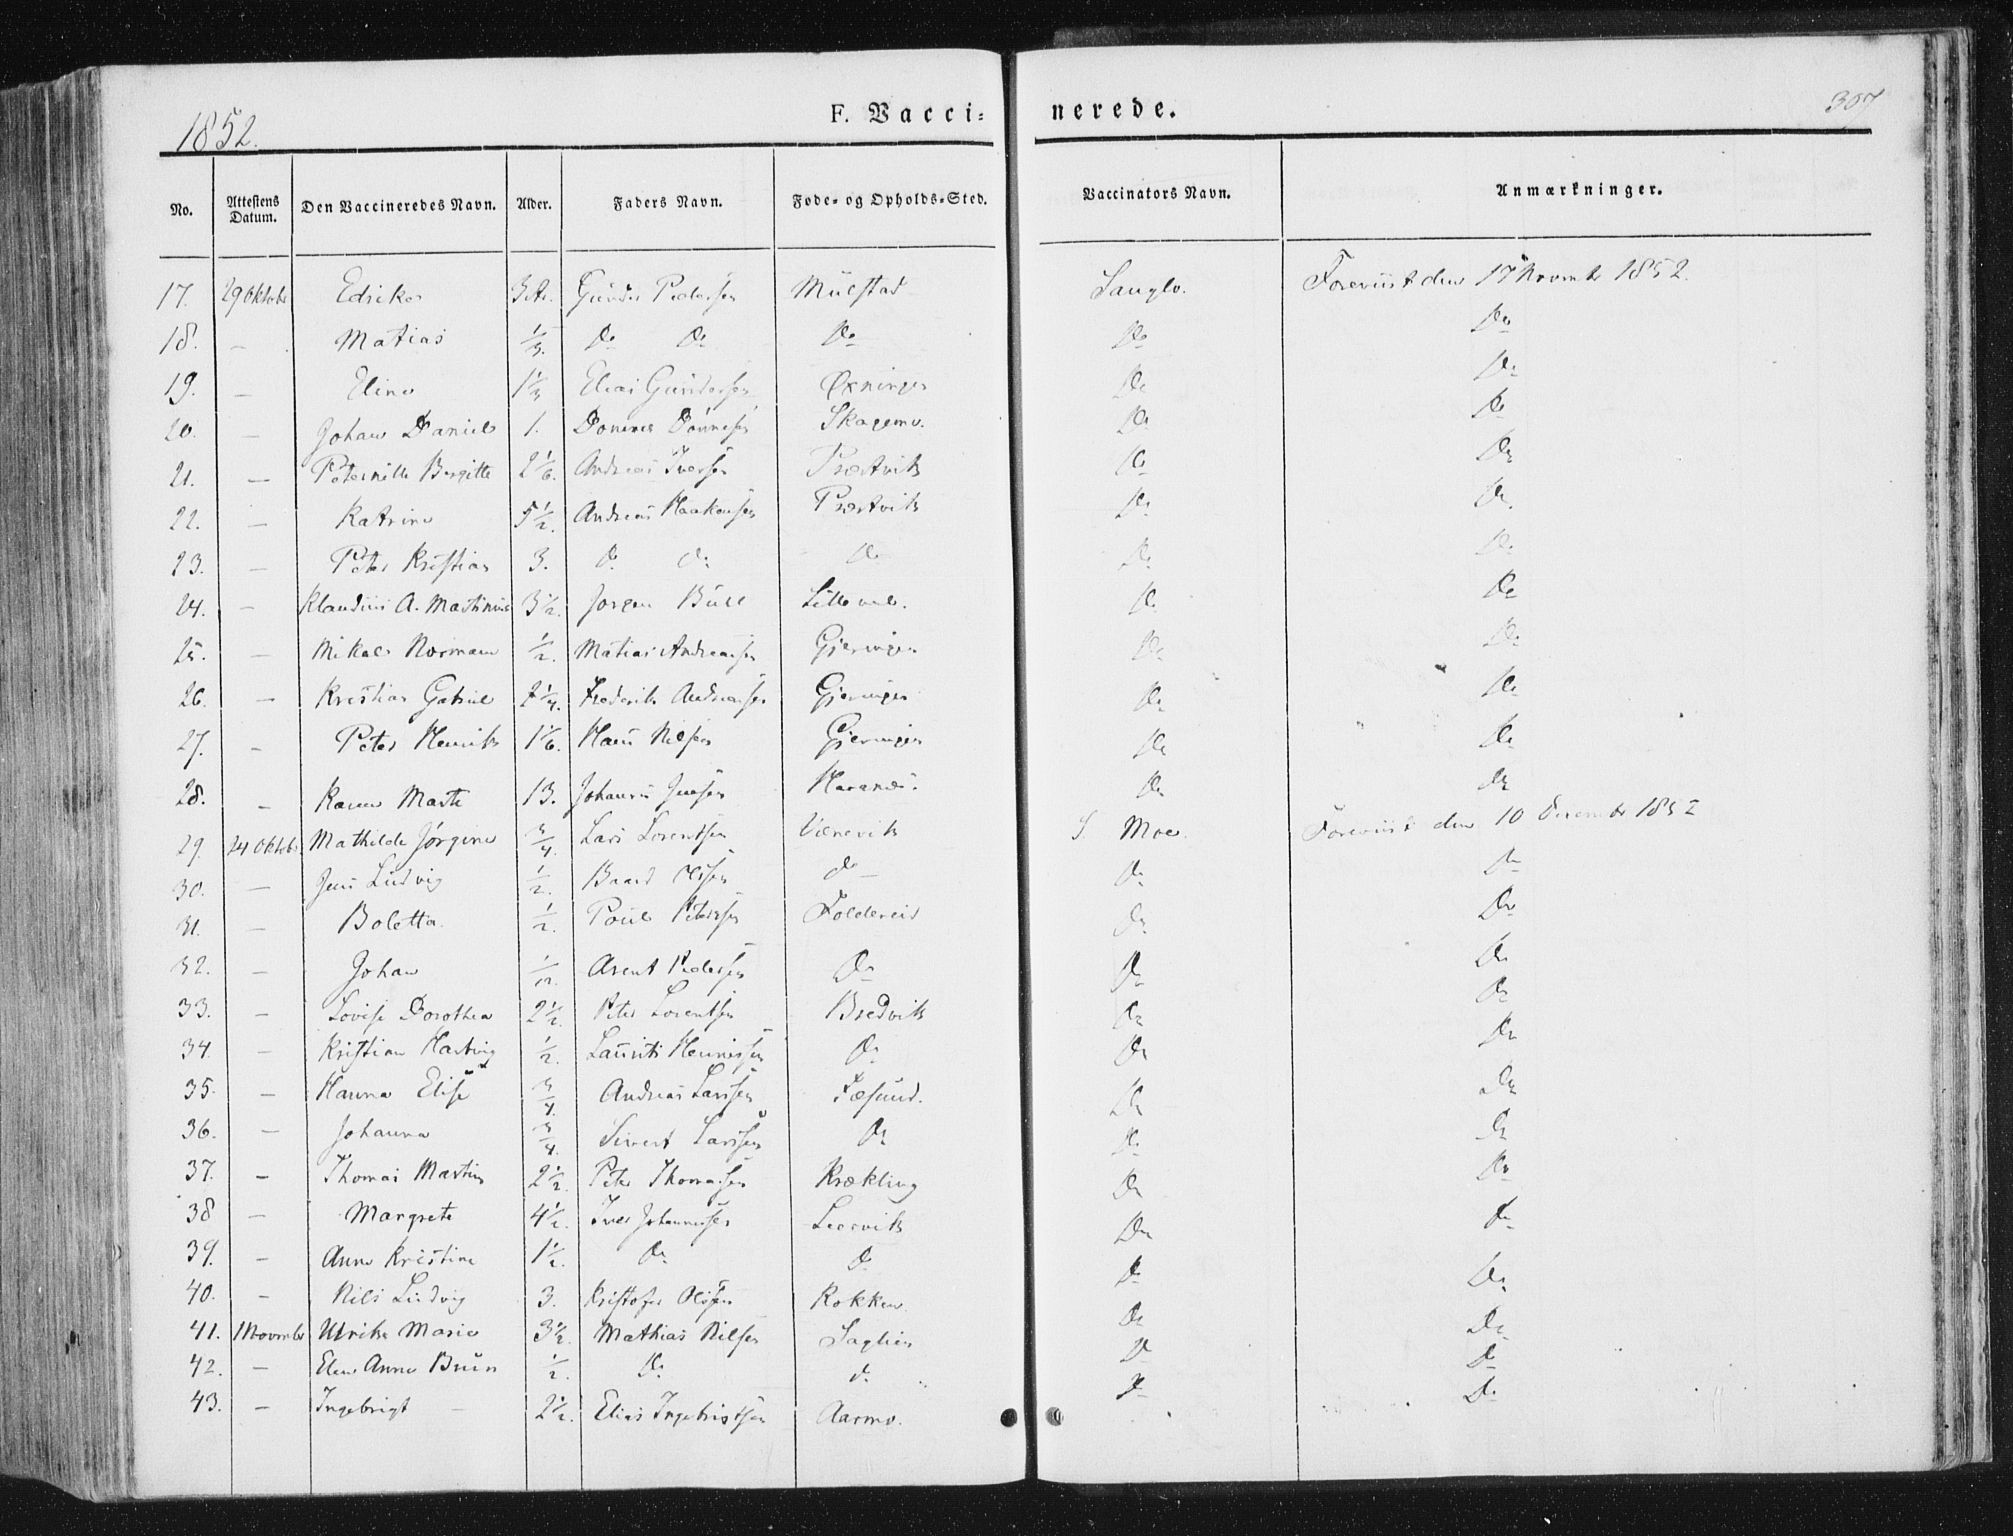 1852.
F. Vacci- nerede.
307
No. Attestens Datum. Den Vaccineredes Navn. Alder. Faders Navn. Føde- og Opholds-Sted. Vaccinators Navn. Anmærkninger.
17. 29 Oktobr Pedersen Foreviist den 17 Novembr 1852.
18. – Matias 1/3. Do Do Do Do Do
19. – Eline 1 1/3 Elias Gundersen Do Do
20. – Johan Daniel 1. Skagemo. Do Do
21. – Peternille Bergitte 2 1/6. Andreas Iversen Præstvik Do Do
22. – Katrine 5 1/2. Andreas Haakensen Præstvik Do Do
23. – Peter Kristian 3. Do Do Do Do Do
24. – Klaudius A. Martinus 3 1/2. Jørgen Do Do
25. – Mikal Normann 1/2. Matias Andreassen Gjeringen Do Do
26. – Kristian Gabriel 2 1/4. Frederik Andreassen Gjeringen Do Do
27. – Peter Henrik 1 1/6. Hans Nilsen Gjeringen Do Do
28. – Karen Marte 13. Johannes Jensen Do Do
29. 24 Oktobr. Mathilde Jørgine 3/4. Lars Lorentsen S. Moe. Foreviist den 10 Decembr 1852
30. – Jens Ludvig 1/2. Baard Olsen do Do Do
31. – Boletta 1/2. Poul Petersen Foldereid Do Do
32. – Johan Arent Pedersen Do Do Do
33. – Lovise Dorothea 2 1/2. Peter Lorentsen Bredvik Do Do
34. – Kristian Hartvig 1/2. Laurits Do Do Do
35. – Hanna Elise 3/4. Andreas Larssen Do Do
36. – Johanna 3/4. Sivert Larssen Do Do Do
37. – Thomas Martin 2 1/2. Peter Thomassen Krækling Do Do
38 – Margrete 4 1/2. Iver Johannessen Leervik Do Do
39. – Anne Kristine 1 1/2. Do Do Do Do
40. – Nils Ludvig 3. Kristofer Olsen Kokken Do Do
41. 1 Novembr Ulrike Marie 3 1/2. Mathias Nilsen Saglien Do Do
42. – Elen Anna 1/2. Do do Do Do
43. – Ingebrigt – 2 1/2. Elias Ingebrigtsen Aarmo.